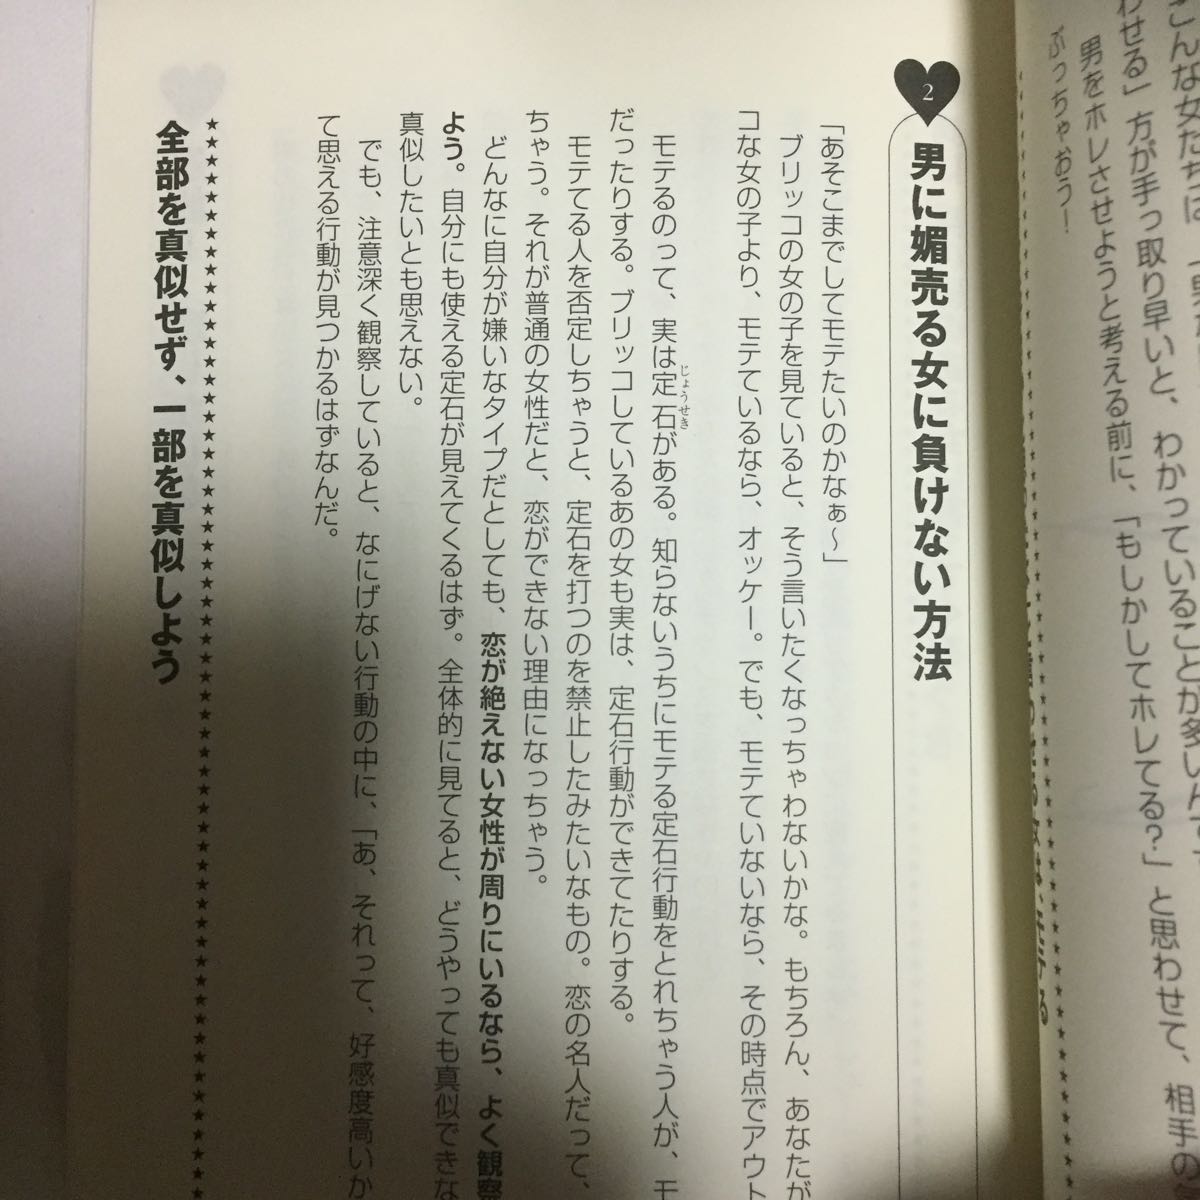 こんな女たちは、「男
わせる」方が手っ取り早いと、わかっていることが多いんです
男をホレさせようと考える前に、「もしかしてホレてる?」と思わせて、相手の
ぶっちゃおう!
モテる
2
男に媚売る女に負けない方法
「あそこまでしてモテたいのかなぁ〜」
ブリッコの女の子を見ていると、そう言いたくなっちゃわないかな。もちろん、あなたが
コな女の子より、モテているなら、オッケー。でも、モテていないなら、その時点でアウト
モテるのって、実は定石がある。知らないうちにモテる定石行動をとれちゃう人が、モ
じょうせき
だったりする。ブリッコしているあの女も実は、定石行動ができてたりする。
モテてる人を否定しちゃうと、定石を打つのを禁止したみたいなもの。恋の名人だって、
ちゃう。それが普通の女性だと、恋ができない理由になっちゃう。
どんなに自分が嫌いなタイプだとしても、恋が絶えない女性が周りにいるなら、よく観察
よう。自分にも使える定石が見えてくるはず。全体的に見てると、どうやっても真似できな
真似したいとも思えない。
でも、注意深く観察していると、なにげない行動の中に、「あ、それって、好感度高いか
て思える行動が見つかるはずなんだ。
全部を真似せず、一部を真似しよう